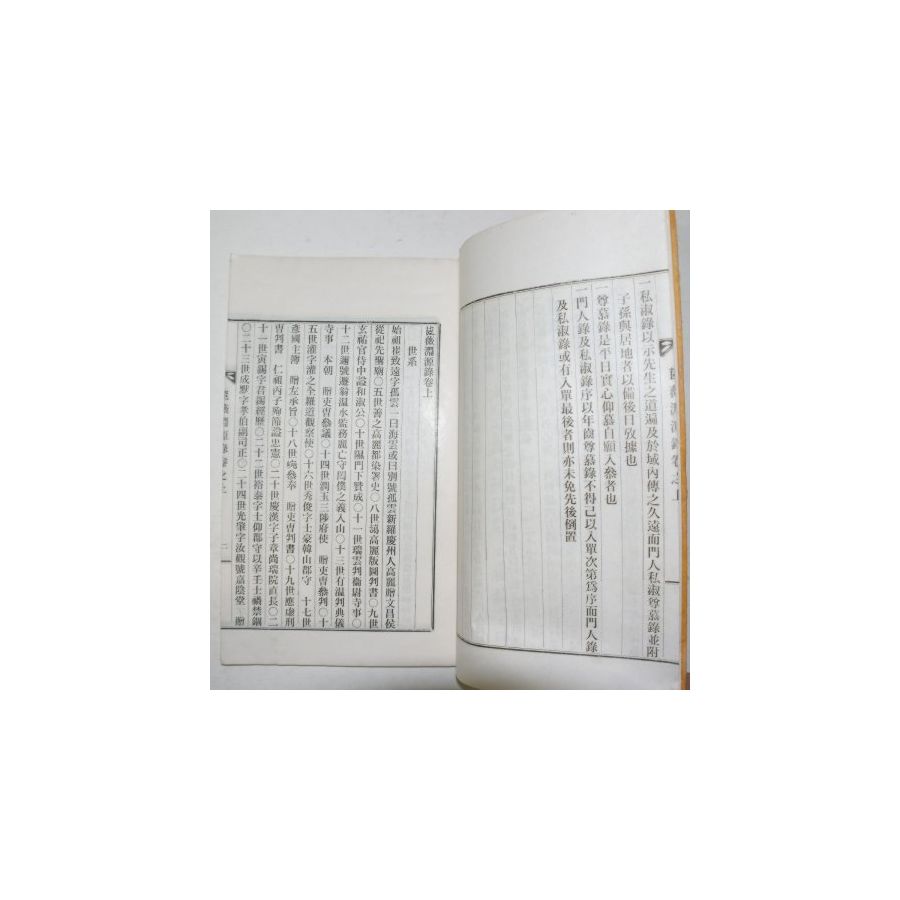 一私淑錄以示先生之道遍及於域內傳之久遠而門人私淑尊慕錄並附
子孫與居地者以備後日攷據也
一尊慕錄是平日實心仰慕自願入參者也
一門人錄及私淑錄序以年齒尊慕錄不得已以入單次第爲序而門人錄
及私淑錄或有入單最後者則亦未免先後倒置
淵源錄卷之上
淵源錄卷上
世系
始祖崔致遠字孤雲一曰海雲或曰別號孤雲新羅慶州人高麗贈文昌侯
從祀先聖廟〇五世善之高麗都染署史〇八世 高麗版圖判書〇九世
玄祐官侍中諡和淑公〇十世 門下贊成〇十一世瑞雲判衞尉寺事〇
十二世 號遯翁温水監務麗亡守罔僕之義入山〇十三世有温判典儀
寺事 本朝 贈吏曹參議〇十四世潤玉三陟府使 贈吏曹參判〇十
五世灌字灌之全羅道觀察使〇十六世秀俊字士豪韓山郡守 十七世
彥國主簿 贈左承旨〇十八世 參奉 贈吏曹判書〇十九世應虛刑
曹判書 仁祖丙子殉節諡忠憲〇二十世慶漢字子章尚瑞院直長〇二
十一世寅錫字君錫經歷〇二十二世裕泰字士仰郡守以辛壬士禍禁錮
〇二十三世成 字孝伯副司正〇二十四世光肇字汝觀號嘉陰堂 贈
淵源錄卷之上